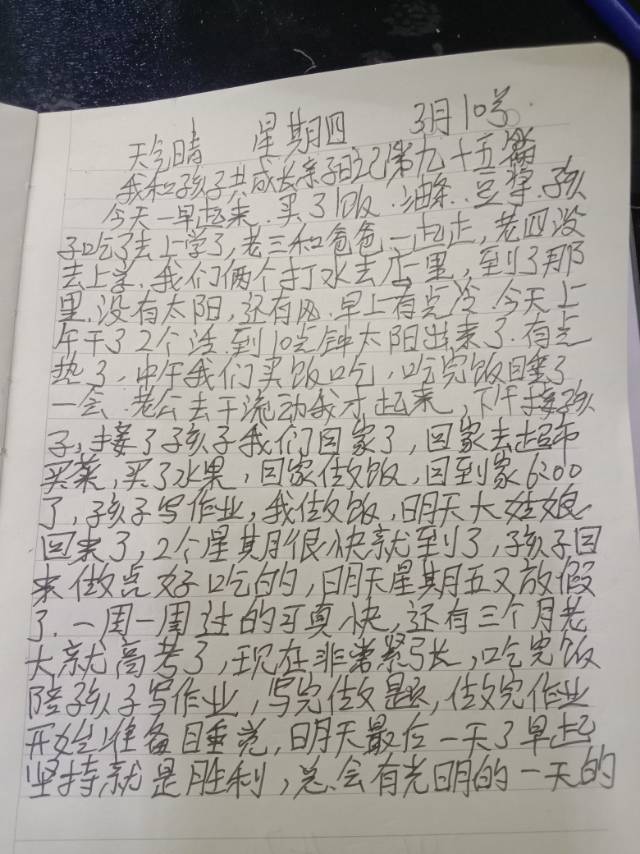 天气晴 星期四 3月10号.
我和孩子共成长亲子日记第九十五篇
今天一早起来.买了饭.油条.豆浆.孩
子吃了去上学了,老三和爸爸一起走,老四没
去上学.我们俩个打水去店里,到了那
里.没有太阳,还有风.早上有点冷.今天上
午干了2个活.到10点钟太阳出来了.有点
热了,中午我们买饭吃,吃完饭睡了
一会.老公去干流动我才起来,下午接孩
子,接了孩子我们回家了,回家去超市
买菜,买了水果,回家做饭,回到家6:00
了,孩子写作业,我做饭,明天大姑娘
回来了,2个星期很快就到了,孩子回
来做点好吃的,明天星期五又放假
了.一周一周过的可真快,还有三个月老
大就高考了,现在非常紧张,吃完饭
陪孩子写作业,写完做题,做完作业
开始准备睡觉,明天最后一天了早起
坚持就是胜利,总会有光明的一天的